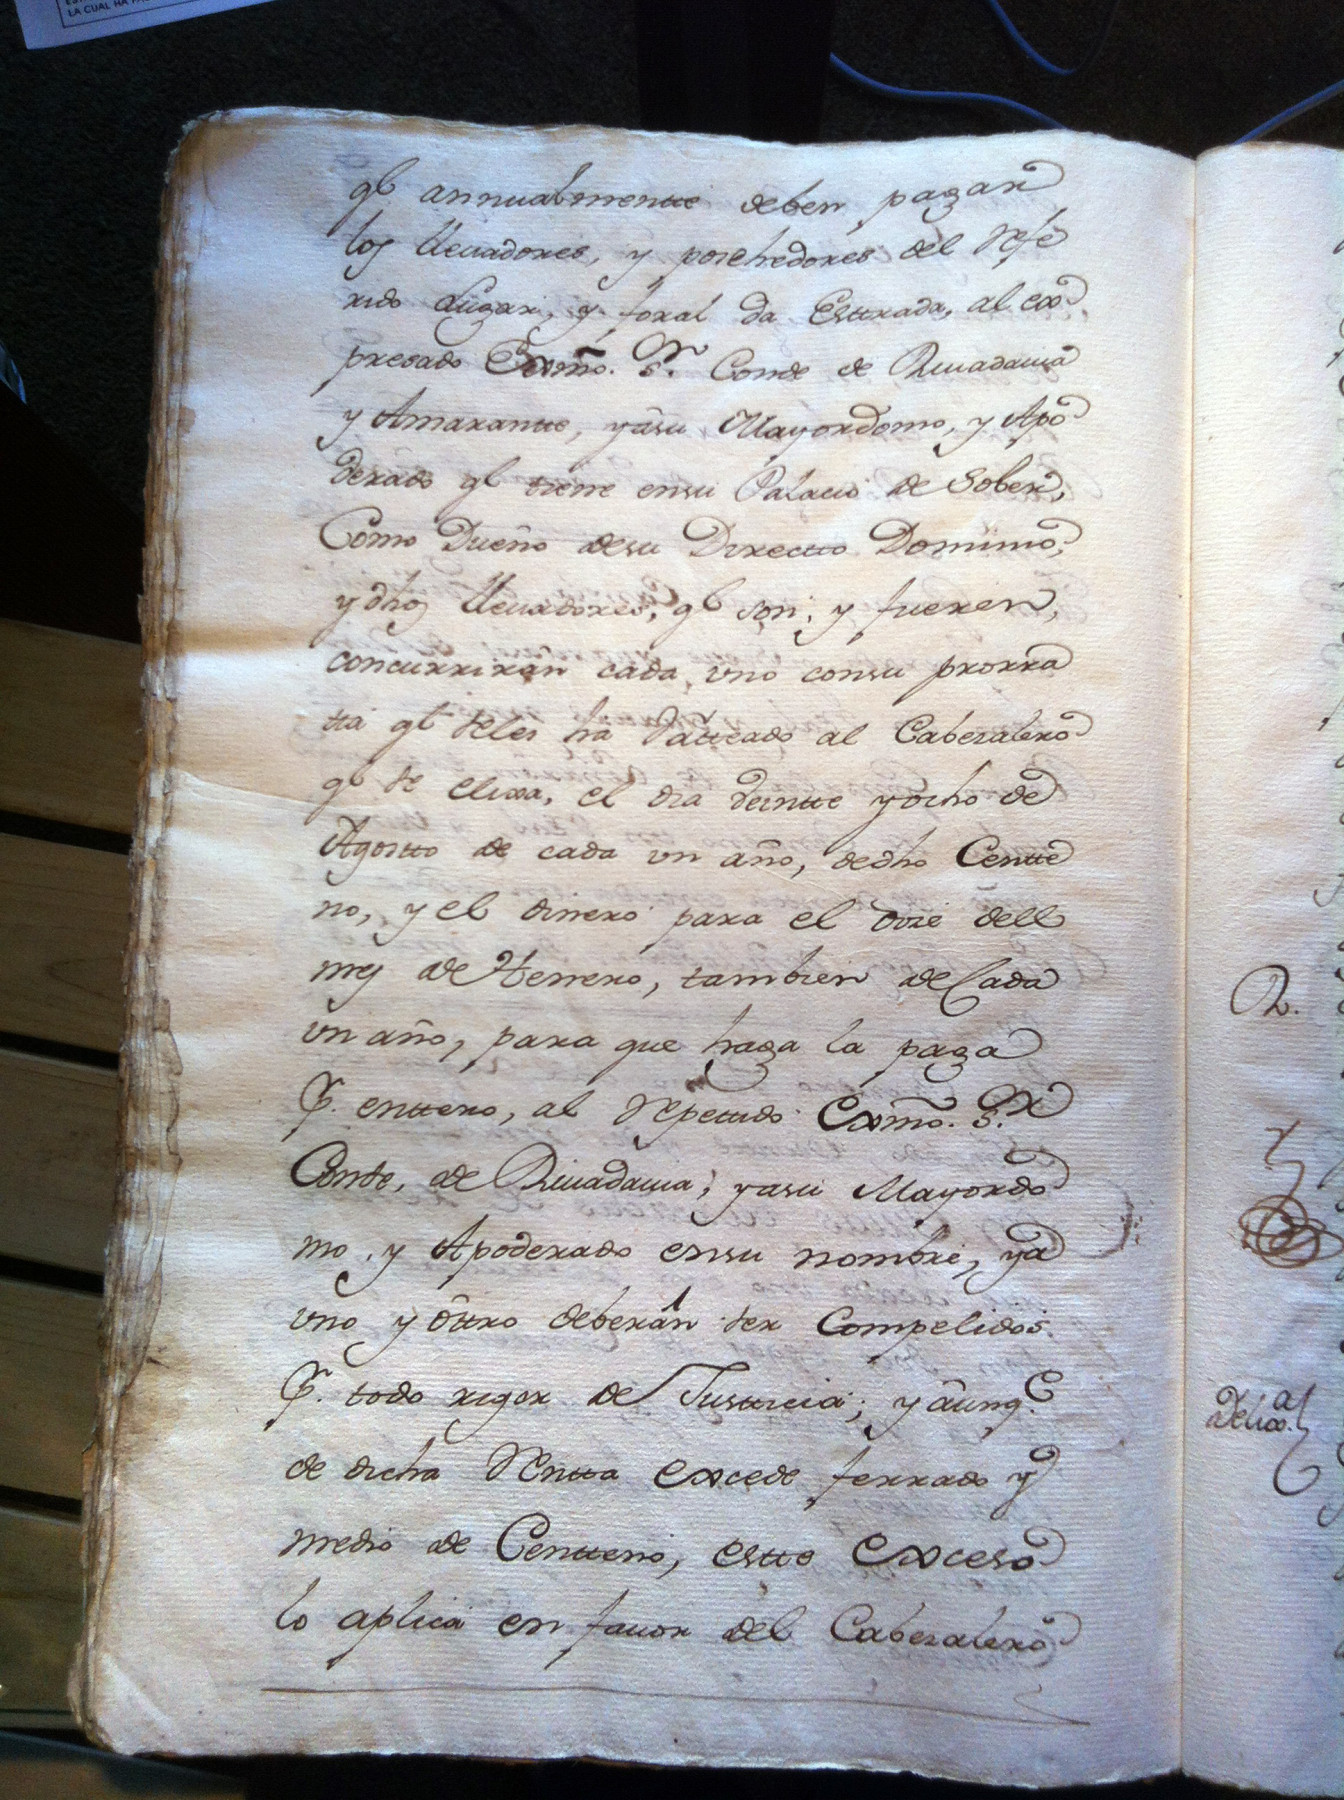 LA CUAL HA
qᵉ annualmentte deben pagar
los lleuadores, y poiehedores del Refe
rido Lugar, y foral da Esttrada, al ex
presado Exmõ. S.ʳ Conde de Riuadauia
y Amarantte, y âsu Mayordomo, y Apo
derado qᵉ tiene ensu Palacio de Sober,
Como Dueño desu Directto Dominio,
y dhos lleuadores, qᵉ son, y fueren,
concurriran cada uno consu prorra
tta qᵉ seles ha ratteado al Cabezalero
qᵉ se elixa, el dia veintte y ocho de
Agostto de cada un año, dedho Centte
no, y el dinero para el doze dell
mes de Henero, tambien de Cada
un año, para que haga la paga
P.ʳ enttero, al Repettido Exmõ. S.ʳ
Conde, de Riuadauia, y asu Mayordo
mo, y Apoderado ensu nombre, ya
uno y ôttro deberán ser Compelidos
P.ʳ todo rigor de Justticia; y âunq.ᵉ
de dicha Rentta excede ferrado y
medio de Centteno, estte exceso
lo aplica en fauor del Cabezalero
R.